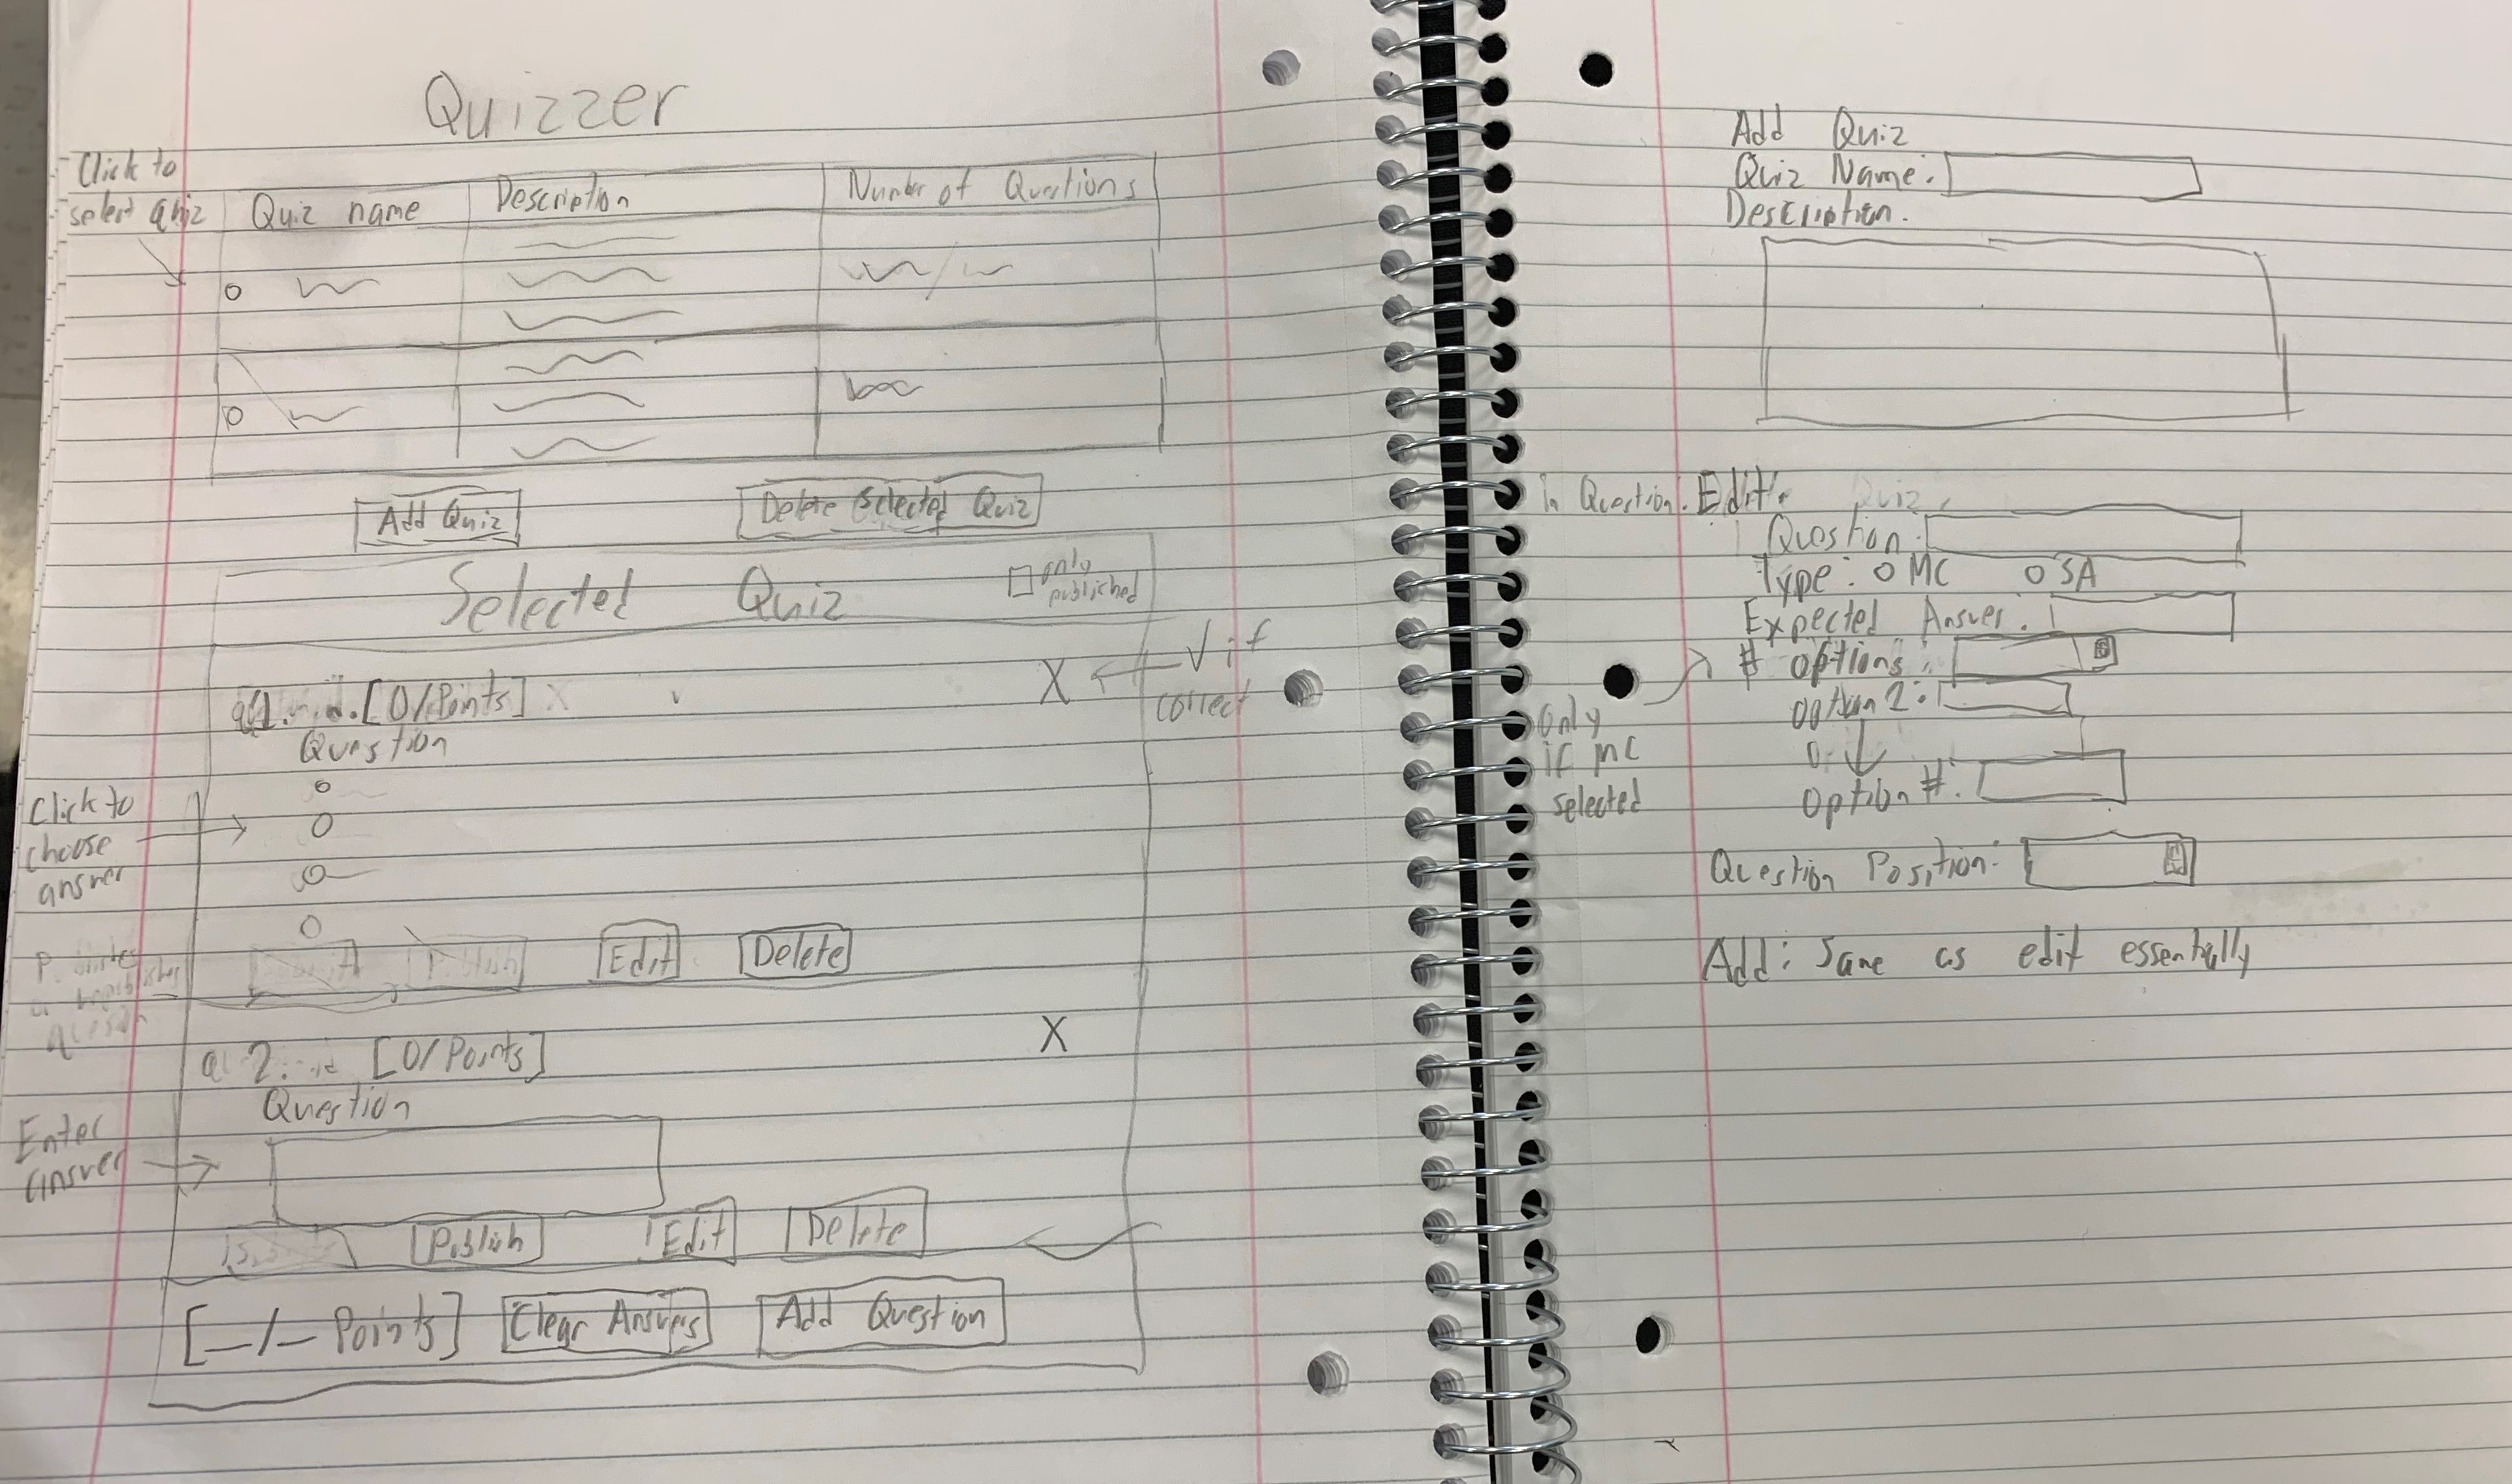 Quizzer
Click to
select quiz
Quiz name
Description
Number of Questions
Add Quiz
Delete Selected Quiz
Selected Quiz
only
published
1. [0/Points]
X
√ if
correct
Question
Click to
choose
answer
Edit
Delete
2. [0/Points]
X
Question
Enter
answer
Publish
Edit
Delete
[_/_ Points]
Clear Answers
Add Question
Add Quiz
Quiz Name:
Description.
in Question. Edit: Quiz
Question:
Type: o MC o SA
Expected Answer:
# options:
option 2:
option #:
only
if MC
selected
Question Position:
Add: Same as edit essentially